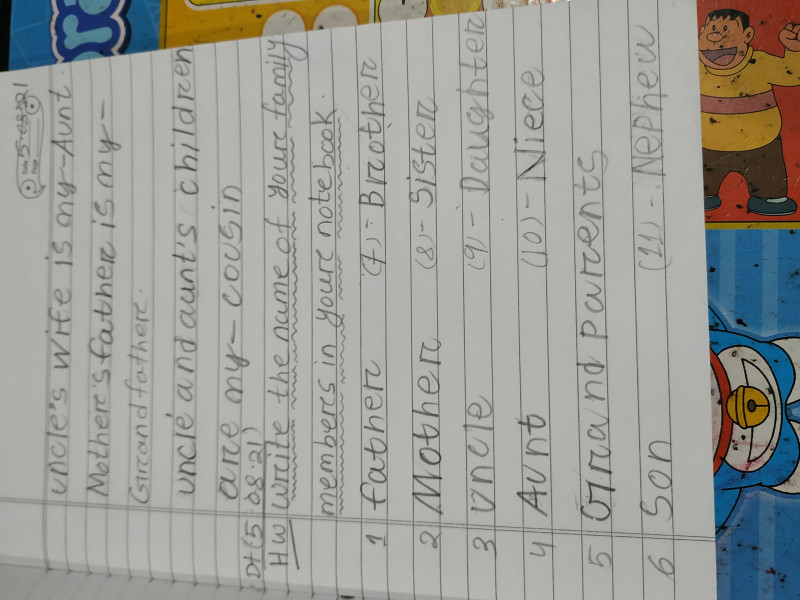 uncle's wife is my-Aunt.
Mother's father is my-
Grandfather.
uncle and aunt's children
are my-cousin
Dt(5.08.21)
HW write the name of your family
members in your notebook.
1 father (7)- Brother
2 Mother (8)- Sister
3 uncle (9)- Daughter
4 Aunt (10)- Niece
5 Grand parents
6 Son (11)- Nephew